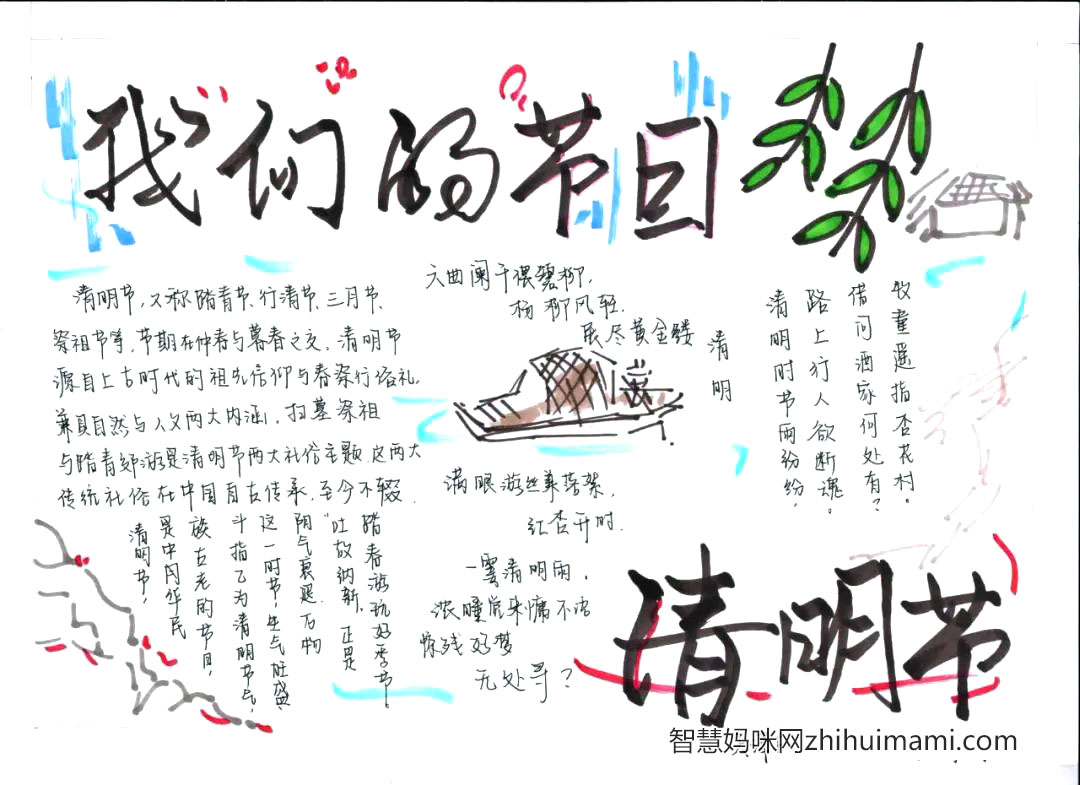 我们的节日
清明节，又称踏青节、行清节、三月节、
祭祖节等，节期在仲春与暮春之交。清明节
源自上古时代的祖先信仰与春祭行俗礼，
兼具自然与人文两大内涵，扫墓祭祖
与踏青郊游是清明节两大礼俗主题，这两大
传统礼俗在中国自古传承，至今不辍。
清明节，
是中国华民
族古老的节日，
斗指乙为清明节气，
这一时节，生气旺盛、
阴气衰退，万物
“吐故纳新，正是
踏春游玩好季节
六曲阑干偎碧柳，
杨柳风轻，
展尽黄金缕
满眼游丝兼落絮，
红杏开时，
一霎清明雨，
浓睡觉来慵不语
惊残好梦
无处寻？
清明
清明时节雨纷纷，
路上行人欲断魂。
借问酒家何处有？
牧童遥指杏花村。
清明节
智慧妈咪网zhihuimami.com